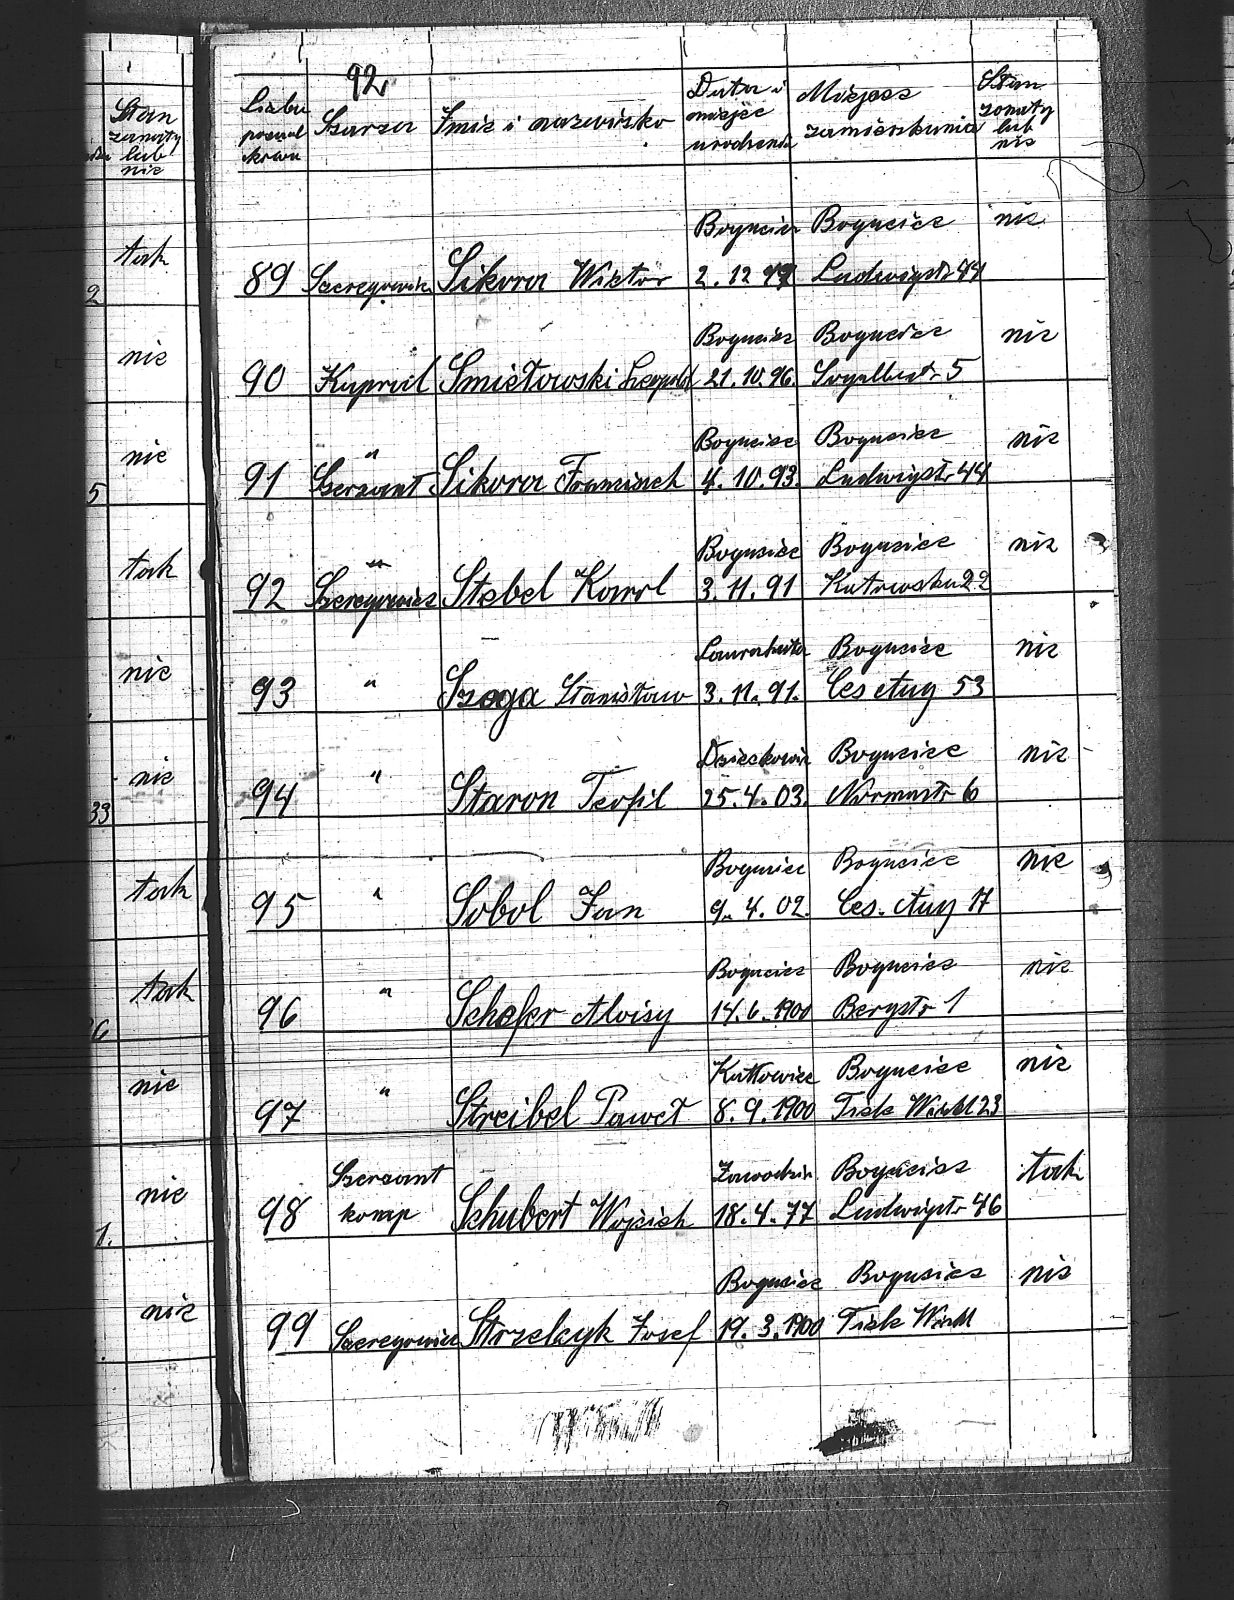 92
Stan
żonaty
lub
nie
Liczba
Szarza
Imie i nazewisko
Data i
miejsc
urodzenia
Miejsce
zamieszkania
Stan
żonaty
lub
nie
tak
Bogucice Bogucice nie
89 Szeregowiec Sikora Wiktor 2. 12 Ludwigstr 44
2
nie
Bogucice Bogucice nie
90 Kapral Smiełowski Leopold 21. 10. 96. 5
nie
" Bogucice Bogucice nie
91 Serzant Sikora Franciszek 4. 10. 93. Ludwigstr 44
5
tak
" Bogucice Bogucice nie
92 Szeregowiec Stebel Karol 3. 11. 91 Katowska 22
nie
Laurahuta Bogucice nie
93 " Szoga Stanisław 3. 11. 91. Ces Aug 53
nie
Dzieckowice Bogucice nie
94 " Staron Teofil 25. 4. 03. Normastr 6
33
tak
Bogucice Bogucice nie
95 " Sobol Jan 9. 4. 02. Ces. Aug 17
tak
Bogucice Bogucice nie
96 " Schefer Aloisy 14. 6. 1900 Bergstr 1
nie
Kattowice Bogucice nie
97 " Streibel Paweł 8. 9. 1900 Tiele Winkl 23
nie
Serzant Zawodzie Bogucice tak
98 komp Schubert Wojciech 18. 4. 77 Ludwigstr 46
1.
nie
Bogucice Bogucice nie
99 Szeregowiec Strzelczyk Josef 19. 3. 1900 Tiele Winkl